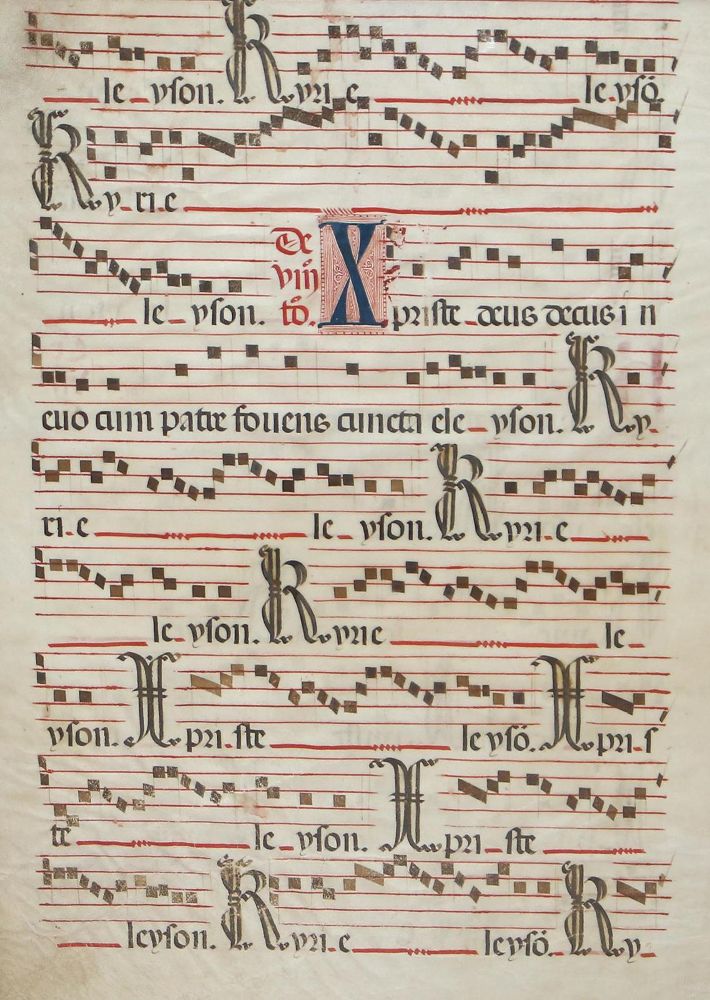 le yson. Kyrie leysō
Kyrie
le yson. De viīī tō. Xpriste deus decus i n
euo cum patre fouens cuncta ele yson. Ky
ri e le yson. Kyri e
le yson. Kyrie le
yson. Xpri ste leysō. Xpri s
te le yson. Xpri ste
leyson. Kyri e leysō. Ky